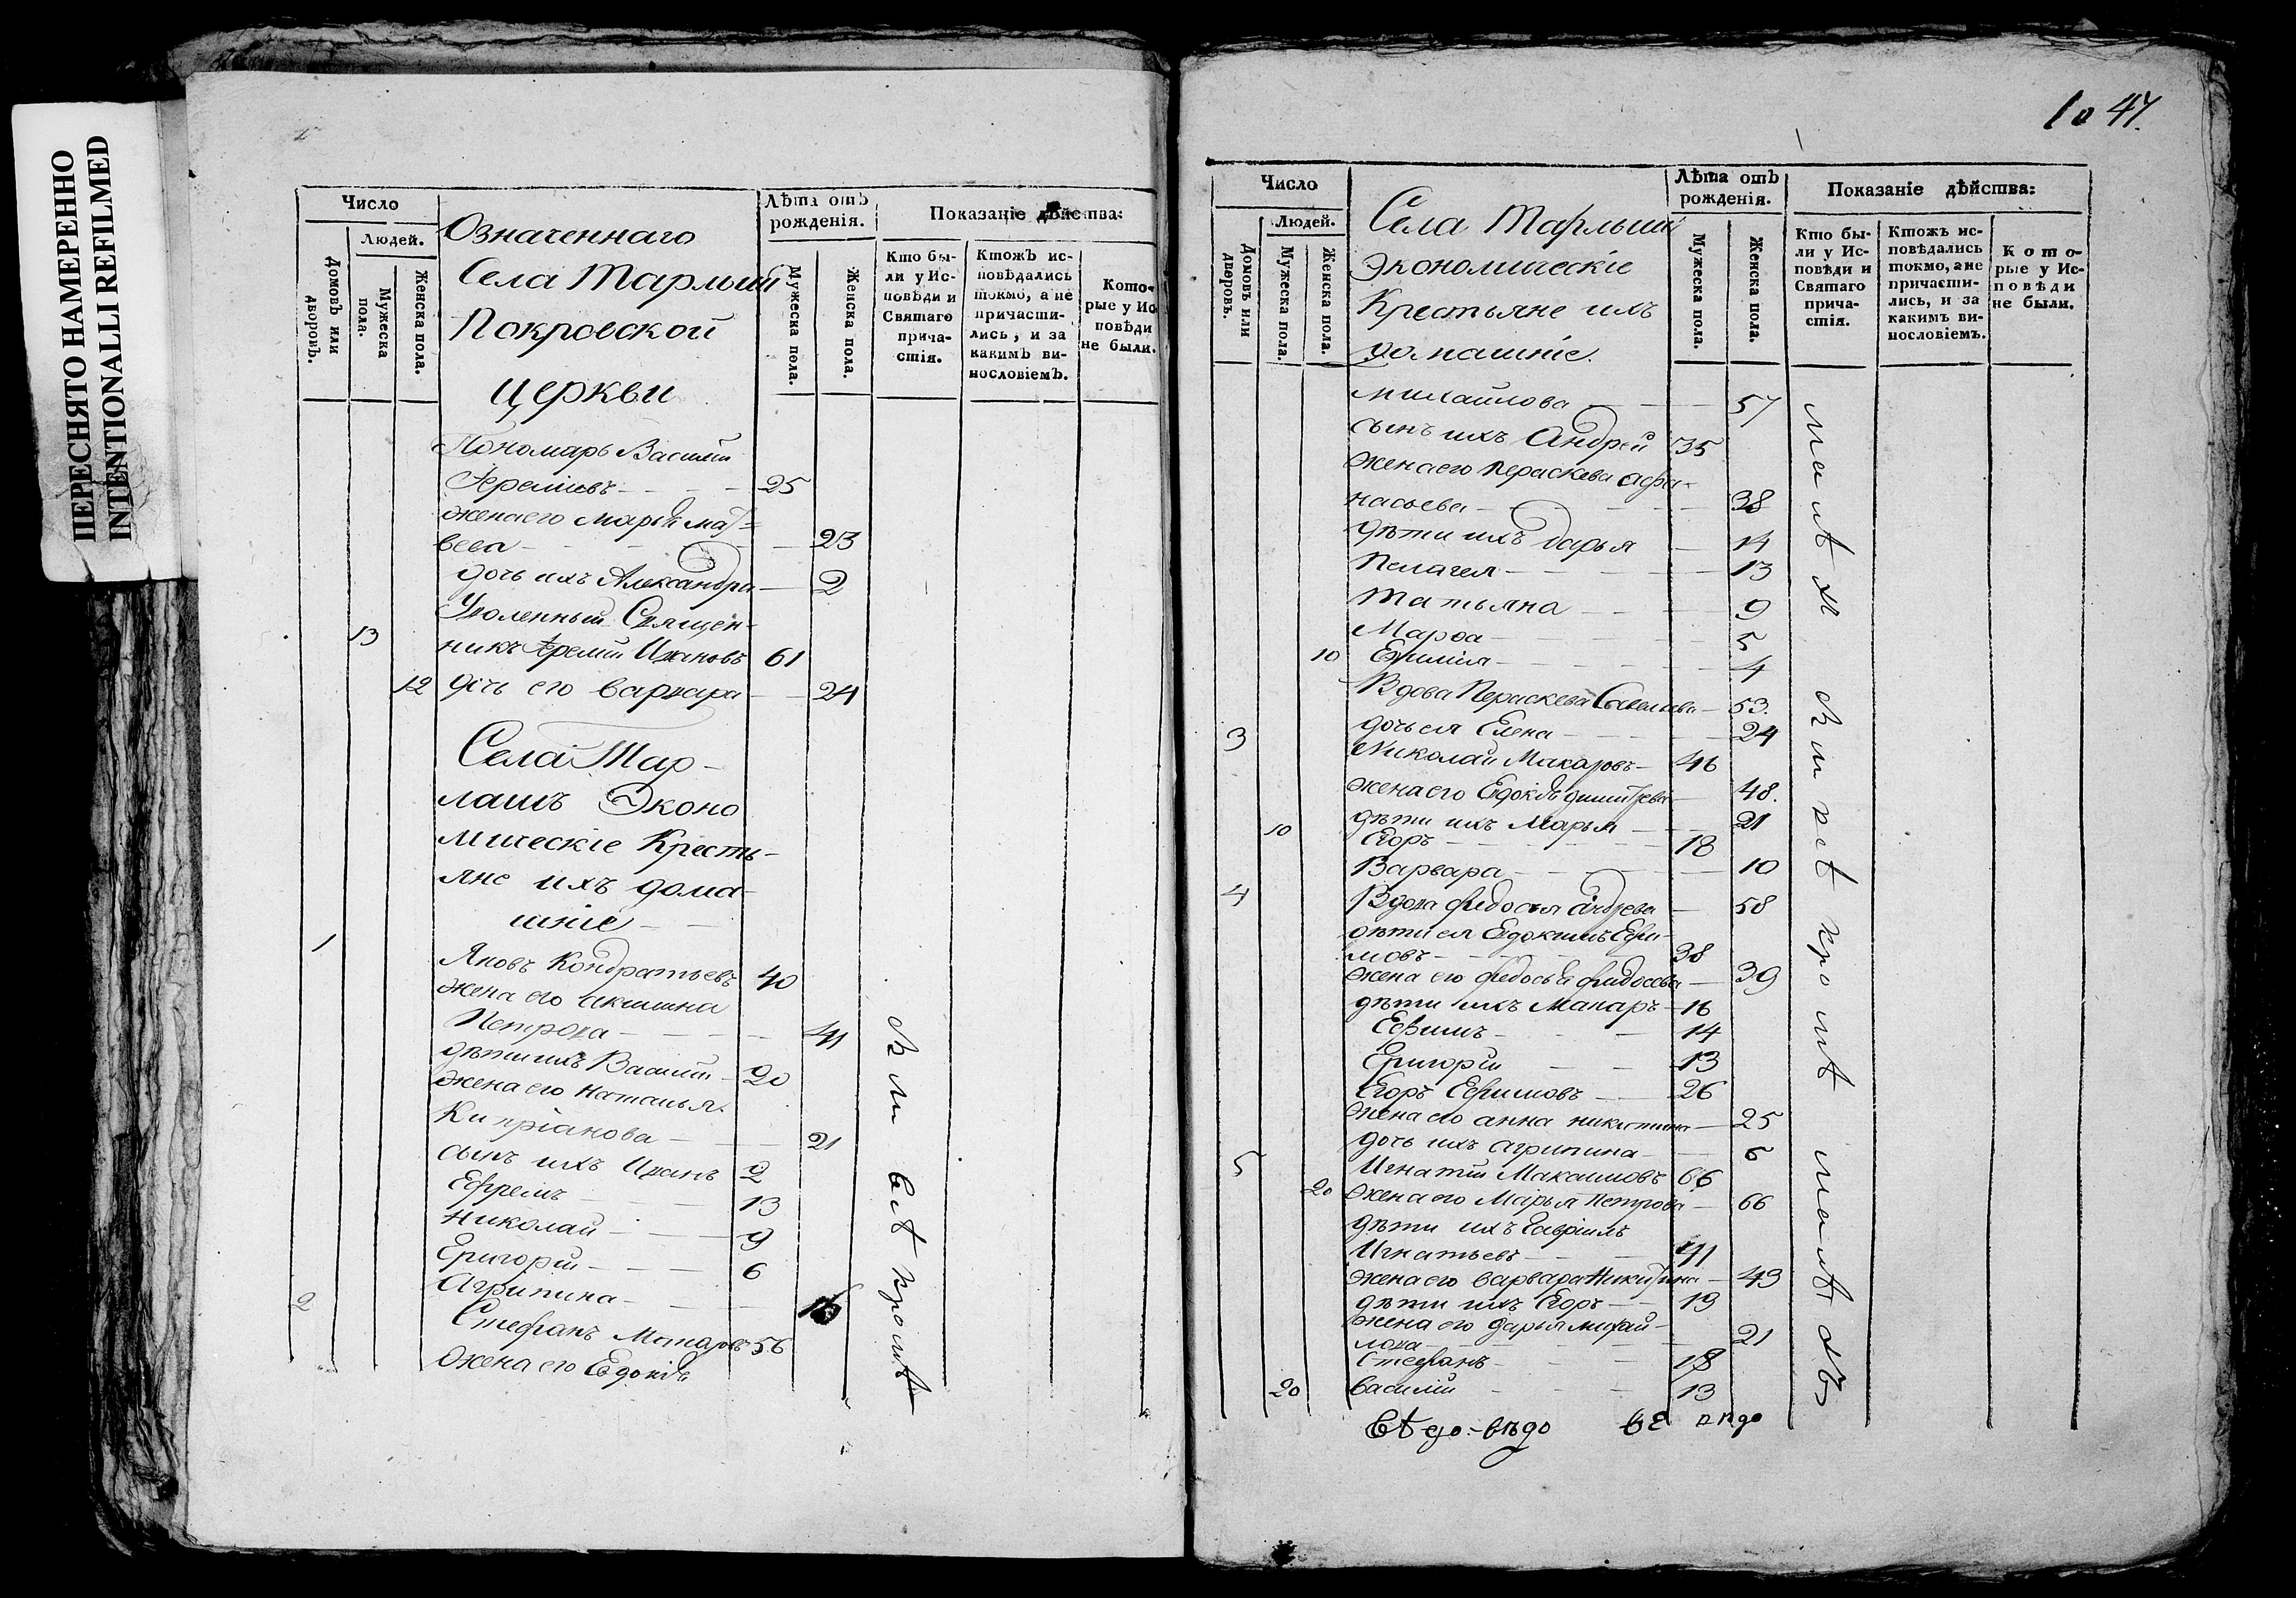 ПЕРЕСНЯТО НАМЕРЕННО
INTENTIONALLI REFILMED
Число
Людей.
Домовъ или дворовъ.
Мужеска пола.
Женска пола.
Означеннаго
Села Тарлыши
Покровской
Церкви
Лѣта отъ рожденія.
Мужеска пола.
Женска пола.
Показаніе дѣйства:
Кто были у Исповѣди и Святаго причастія.
Ктожъ исповѣдались токмо, а не причастились, и за какимъ винословіемъ.
Которые у Исповѣди не были.
Пономарь Василій
Іереміевъ 25
жена его Марья Мат=
веева 23
дочь ихъ Александра 2
Уволенный Священ-
13 никъ Іремій Ивановъ 61
12 дочь его Варвара 24
Села Тар-
лашъ Эконо
мическіе Кресть-
яне ихъ дома-
шніе
1
Яковъ Кондратьевъ 40
жена его Акилина
Петрова 41
дѣти ихъ Василій 20
жена его Наталья
Кипріанова 21
сынъ ихъ Иванъ 2
Ефремъ 13
Николай 9
Григорій 6
Агрипина 16
2 Стефанъ Макаровъ 56
Жена его Евдокія
1047.
Число
Людей.
Домовъ или дворовъ.
Мужеска пола.
Женска пола.
Села Тарлыши
Экономическіе
Крестьяне ихъ
домашніе.
Лѣта отъ рожденія.
Мужеска пола.
Женска пола.
Показаніе дѣйства:
Кто были у Исповѣди и Святаго причастія.
Ктожъ исповѣдались токмо, а не причастились, и за какимъ винословіемъ.
Которые у Исповѣди не были.
Михайлова 57
сынъ ихъ Андрей 35
жена его Пераскева Афа-
насьева 38
дѣти ихъ Дарья 14
Пелагея 13
Татьяна 9
Марѳа 5
10 4
Вдова Пераскева Савельева 53.
дочь ея Елена 24
3 Николай Макаровъ 46
жена его Евдокія Димитрева 48.
10 дѣти ихъ Марья 21
Егоръ 18
Варвара 10
4 Вдова Федосья Андрева 58
дѣти ея Евдокимъ Ефи-
мовъ 38
жена его Федосья Федосева 39
дѣти ихъ Макаръ 16
Ефимъ 14
Григорій 13
Егоръ Ефимовъ 26
жена его Анна Никитина 25
дочь ихъ Агрипина 6
5 Игнатій Максимовъ 66
20 жена его Марья Петрова 66
дѣти ихъ Гавріилъ
Игнатьевъ 41
жена его Варвара Никитина 43
дѣти ихъ Егоръ 19
жена его Дарья Михай-
лова 21
Стефанъ 18
20 Василій 13